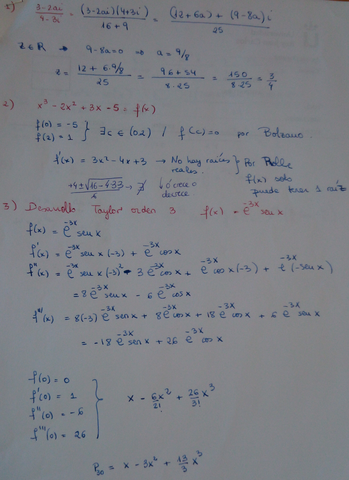 5) (3-2ai)/(4-3i) = (3-2ai)(4+3i)/(16+9) = ((12+6a) + (9-8a)i)/25
z∈R → 9-8a=0 ⇒ a=9/8
z = (12+6·9/8)/25 = (96+54)/(8·25) = 150/(8·25) = 3/4
2) x³-2x²+3x-5 = f(x)
f(0) = -5
f(2) = 1 } ∃c∈(0,2) / f(c)=0 por Bolzano.
f'(x) = 3x²-4x+3 → No hay raíces reales. } Por Rolle f(x) solo puede tener 1 raíz
(+4±√(16-4·3·3))/ → ∄ ↓ ó crece o decrece
3) Desarrollo Taylor orden 3 f(x) = e^-3x sen x
f(x) = e^-3x sen x
f'(x) = e^-3x sen x (-3) + e^-3x cos x
f''(x) = e^-3x sen x (-3)² - 3 e^-3x cos x + e^-3x cos x (-3) + e^-3x (-sen x)
= 8 e^-3x sen x - 6 e^-3x cos x
f'''(x) = 8(-3) e^-3x sen x + 8 e^-3x cos x + 18 e^-3x cos x + 6 e^-3x sen x
= -18 e^-3x sen x + 26 e^-3x cos x
f(0) = 0
f'(0) = 1
f''(0) = -6
f'''(0) = 26 } x - 6x²/2! + 26x³/3!
= x - 3x² + 13/3 x³